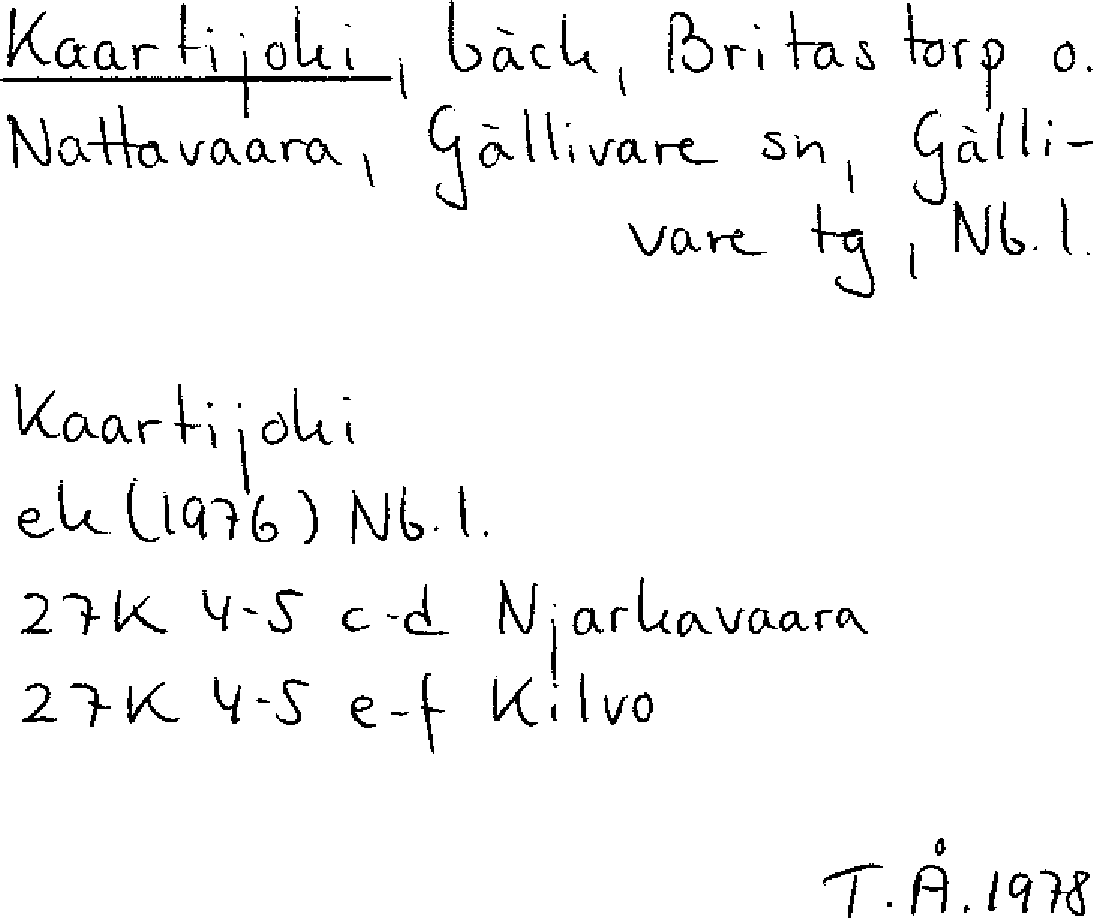 Kaartijoki, bäck, Britastorp o.
Nattavaara, Gällivare sn, Gälli-
vare tg, Nb. l.
Kaartijoki
ek (1976) Nb. l.
27K 4-5 c-d Njarkavaara
27K 4-5 e-f Kilvo
T. Å. 1978